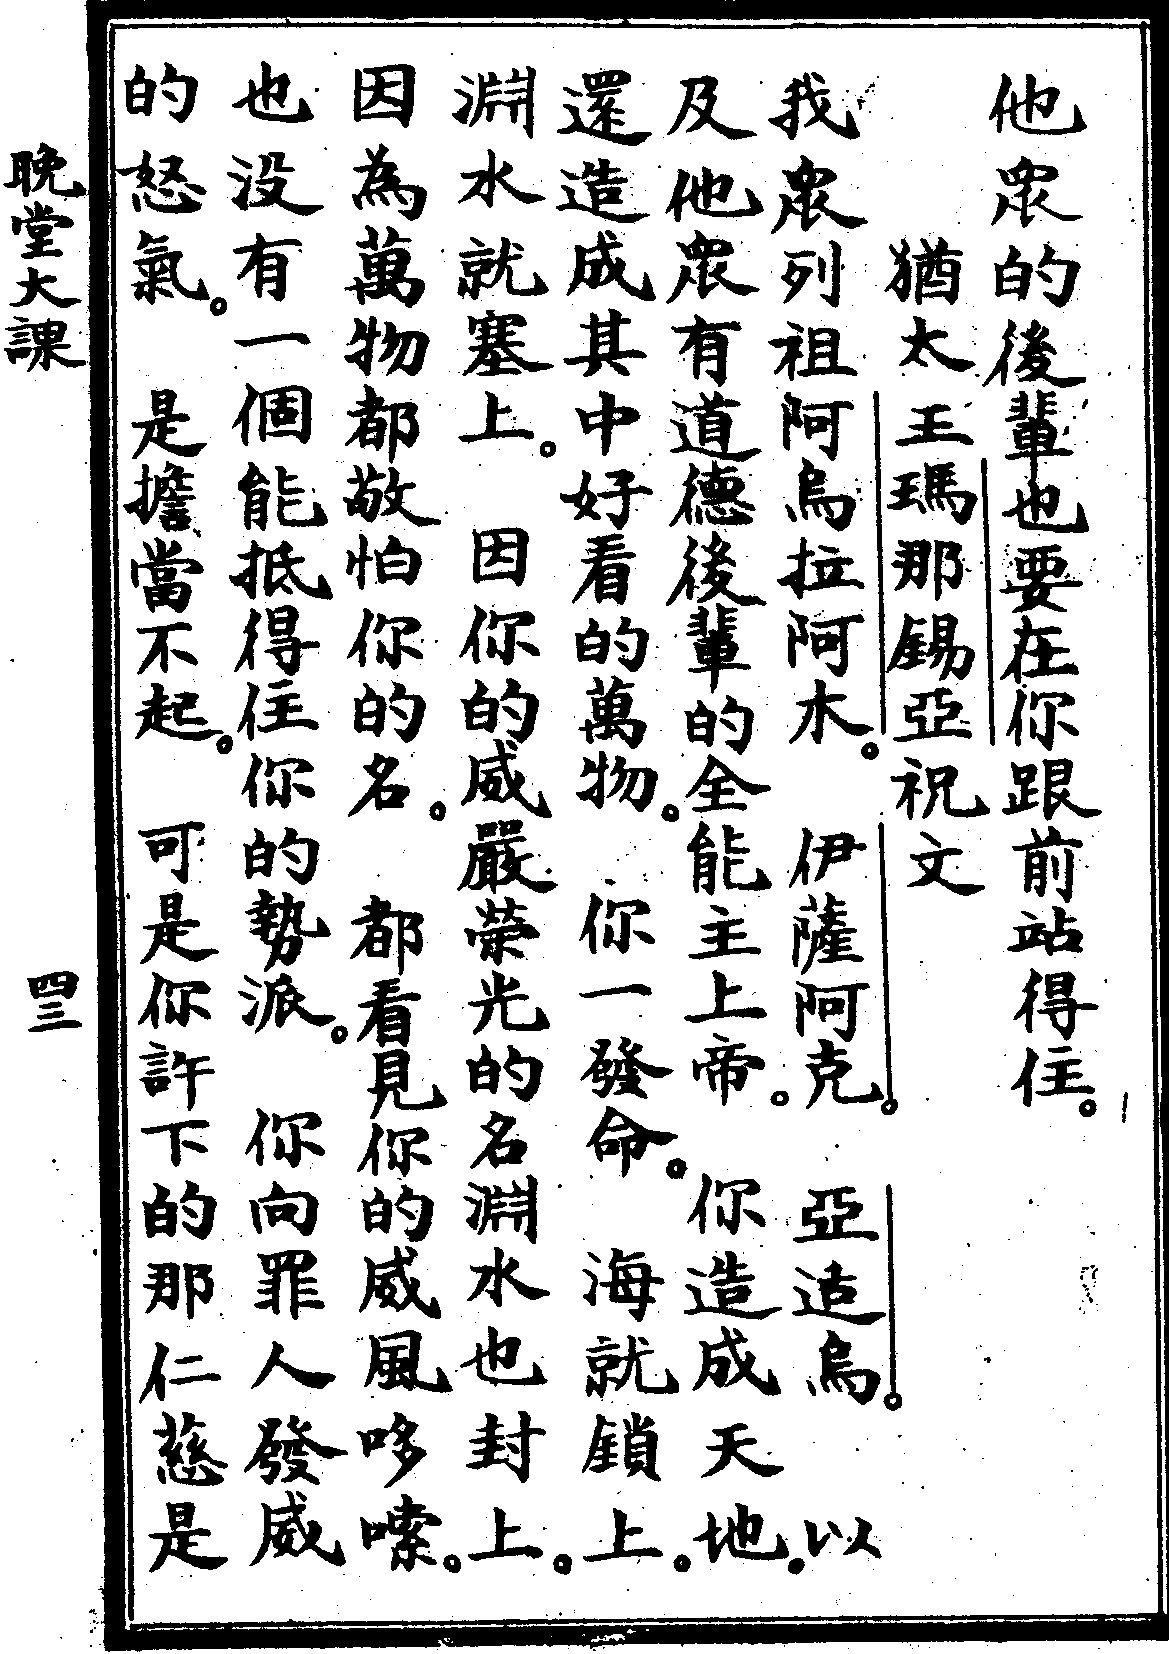 他衆的後輩也要在你跟前站得住。
猶太王瑪那錫亞祝文
我衆列祖阿烏拉阿木。伊薩阿克。亞适烏。以
及他衆有道德後輩的全能主上帝。你造成天地。
還造成其中好看的萬物。你一發命。海就鎖上。
淵水就塞上。因你的威嚴榮光的名淵水也封上。
因為萬物都敬怕你的名。都看見你的威風哆嗦。
也没有一個能抵得住你的勢派。你向罪人發威
的怒氣。是擔當不起。可是你許下的那仁慈是
晚堂大課
四三